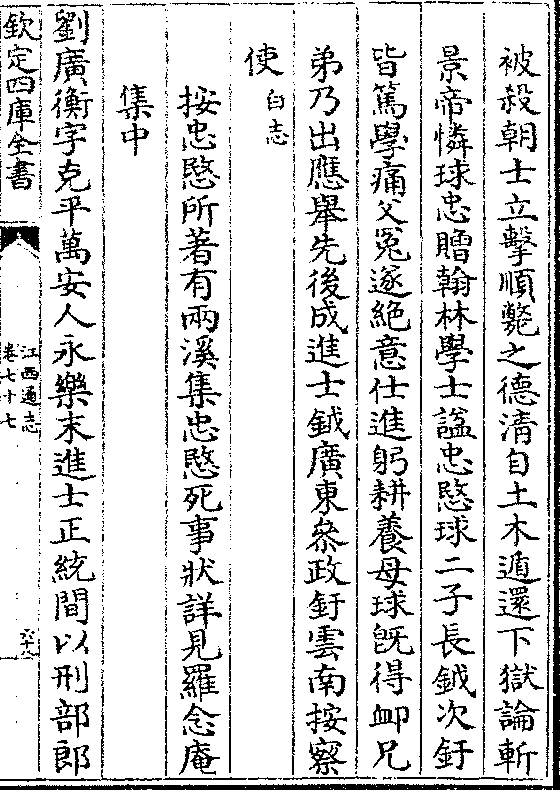 被殺朝士立擊順斃之德清自土木遁還下獄論斬
景帝憐球忠贈翰林學士諡忠愍球二子長鉞次釪
皆篤學痛父冤遂絶意仕進躬耕養母球旣得卹兄
弟乃出應舉先後成進士鉞廣東叅政釪雲南按察
使白志
按忠愍所著有兩溪集忠愍死事狀詳見羅念庵
集中
劉廣衡字克平萬安人永樂末進士正統間以刑部郎
欽定四庫全書
江西通志
卷七十七